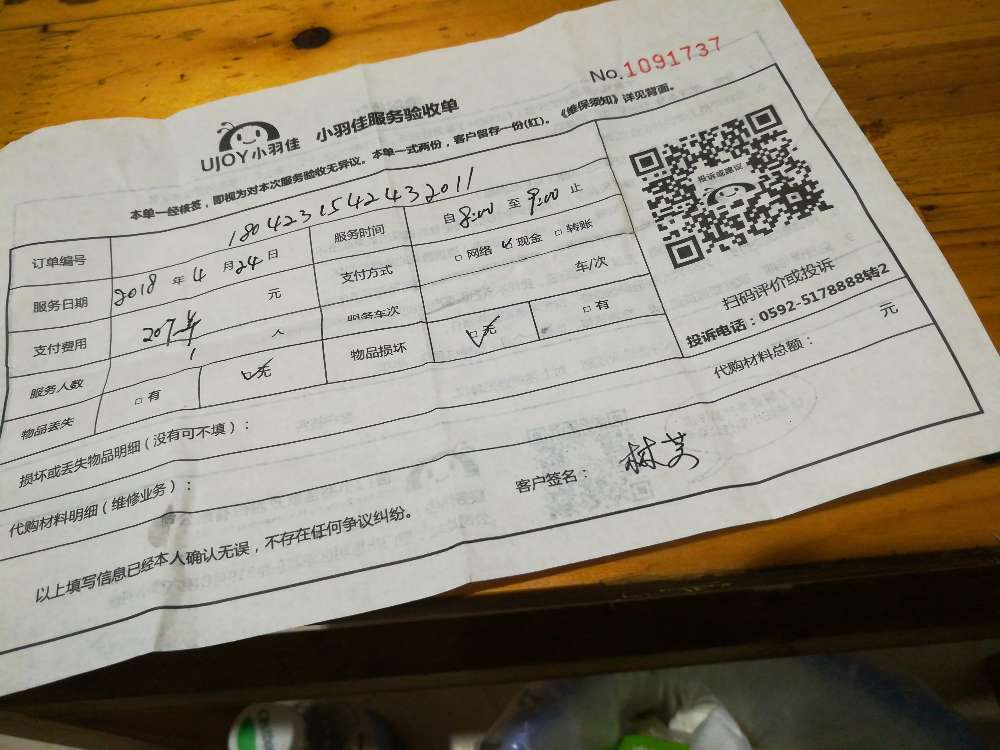 No.1091737
UJOY小羽佳 小羽佳服务验收单
本单一经核签，即视为对本次服务验收无异议。本单一式两份，客户留存一份(红)。《维保须知》详见背面。
订单编号 1804231542432011
服务日期 2018 年 4 月 24 日 服务时间 自 8:00 至 9:00 止
支付费用 207 元 支付方式 □网络 ☑现金 □转账
服务人数 1 人 服务车次 车/次
物品丢失 □有 ☑无 物品损坏 ☑无 □有
投诉或建议
扫码评价或投诉
投诉电话：0592-5178888转2
损坏或丢失物品明细（没有可不填）：
代购材料明细（维修业务）： 代购材料总额： 元
以上填写信息已经本人确认无误，不存在任何争议纠纷。 客户签名：